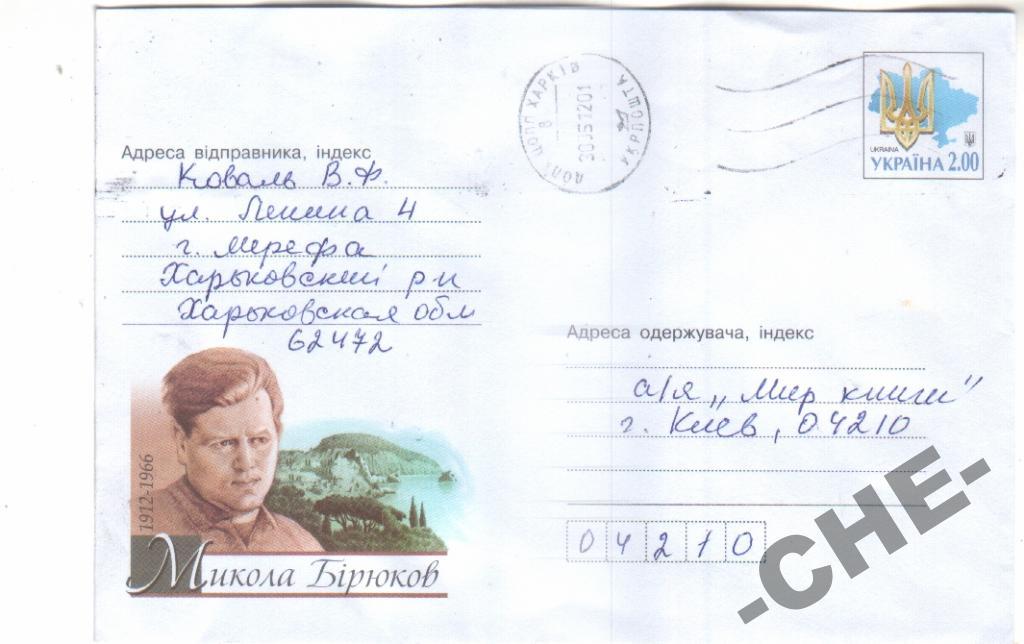 ЦОПП ХАРКІВ
УКРПОШТА
8
UKRAINA
УКРАЇНА 2.00
Адреса відправника, індекс
Коваль В.Ф.
ул. Ленина 4
г. Мерефа
Харьковский р-н
Харьковская обл
62472
Адреса одержувача, індекс
а/я „Мир книги”
г. Киев, 04210
04210
1912-1966
Микола Бірюков
-CHE-